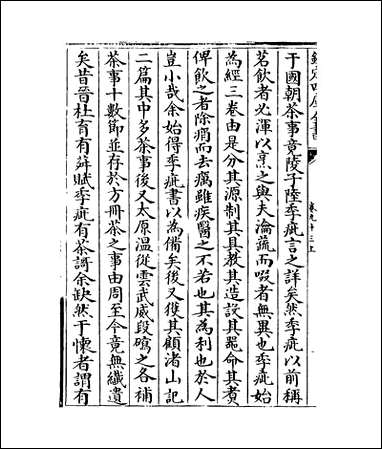 欽定四庫全書
卷九十三上
于國朝茶事竟陵子陸季疵言之詳矣然季疵以前稱
茗飲者必渾以烹之與夫瀹蔬而啜者無異也季疵始
為經三卷由是分其源制其具教其造設其器命其煑
俾飲之者除痟而去癘雖疾醫之不若也其為利也於人
豈小哉余始得季疵書以為備矣後又獲其顧渚山記
二篇其中多茶事後又太原溫從雲武威段䃜之各補
茶事十數節並存於方冊茶之事由周至今竟無纖遺
矣昔晉杜育有荈賦季疵有茶謌余缺然于懷者謂有